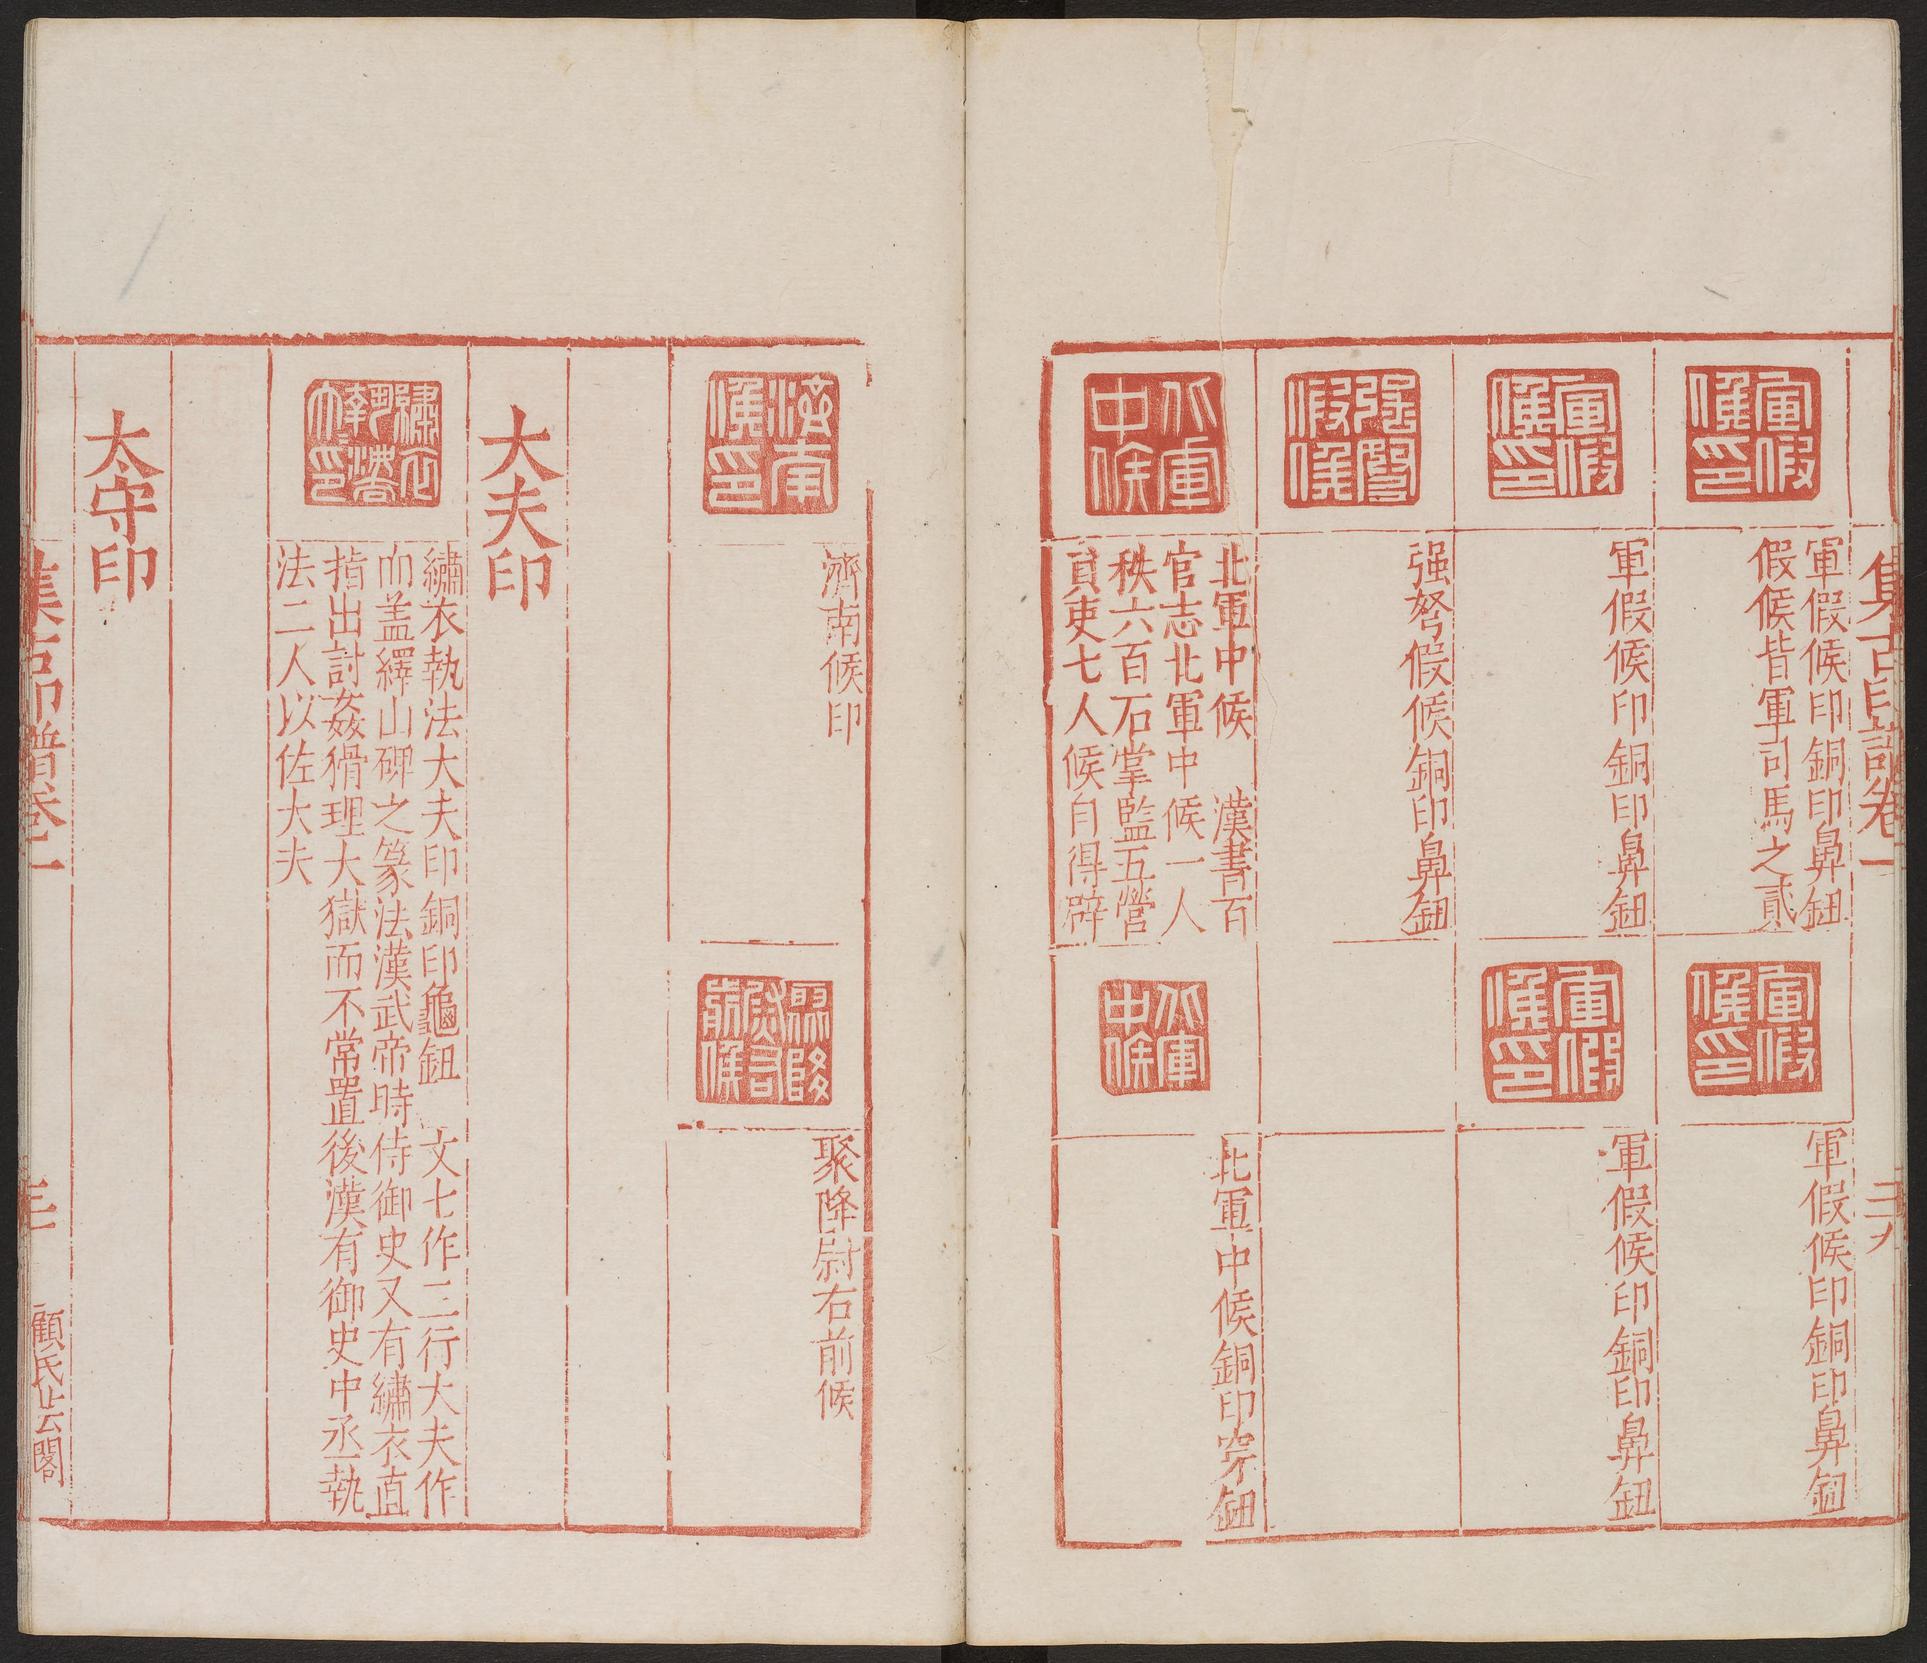 集古印譜卷一
軍假候印銅印鼻鈕
假候皆軍司馬之貳
軍假候印銅印鼻鈕
軍假候印銅印鼻鈕
軍假候印銅印鼻鈕
强弩假候銅印鼻鈕
北軍中候 漢書百
官志北軍中候一人
秩六百石掌監五營
員吏七人候自得辟
北軍中候銅印穿鈕
濟南候印
聚降尉右前候
大夫印
繡衣執法大夫印銅印龜鈕 文七作二行大夫作
而盖繹山碑之篆法漢武帝時侍御史又有繡衣直
指出討姦猾理大獄而不常置後漢有御史中丞執
法二人以佐大夫
大守印
集古印譜卷一
顧氏芸閣